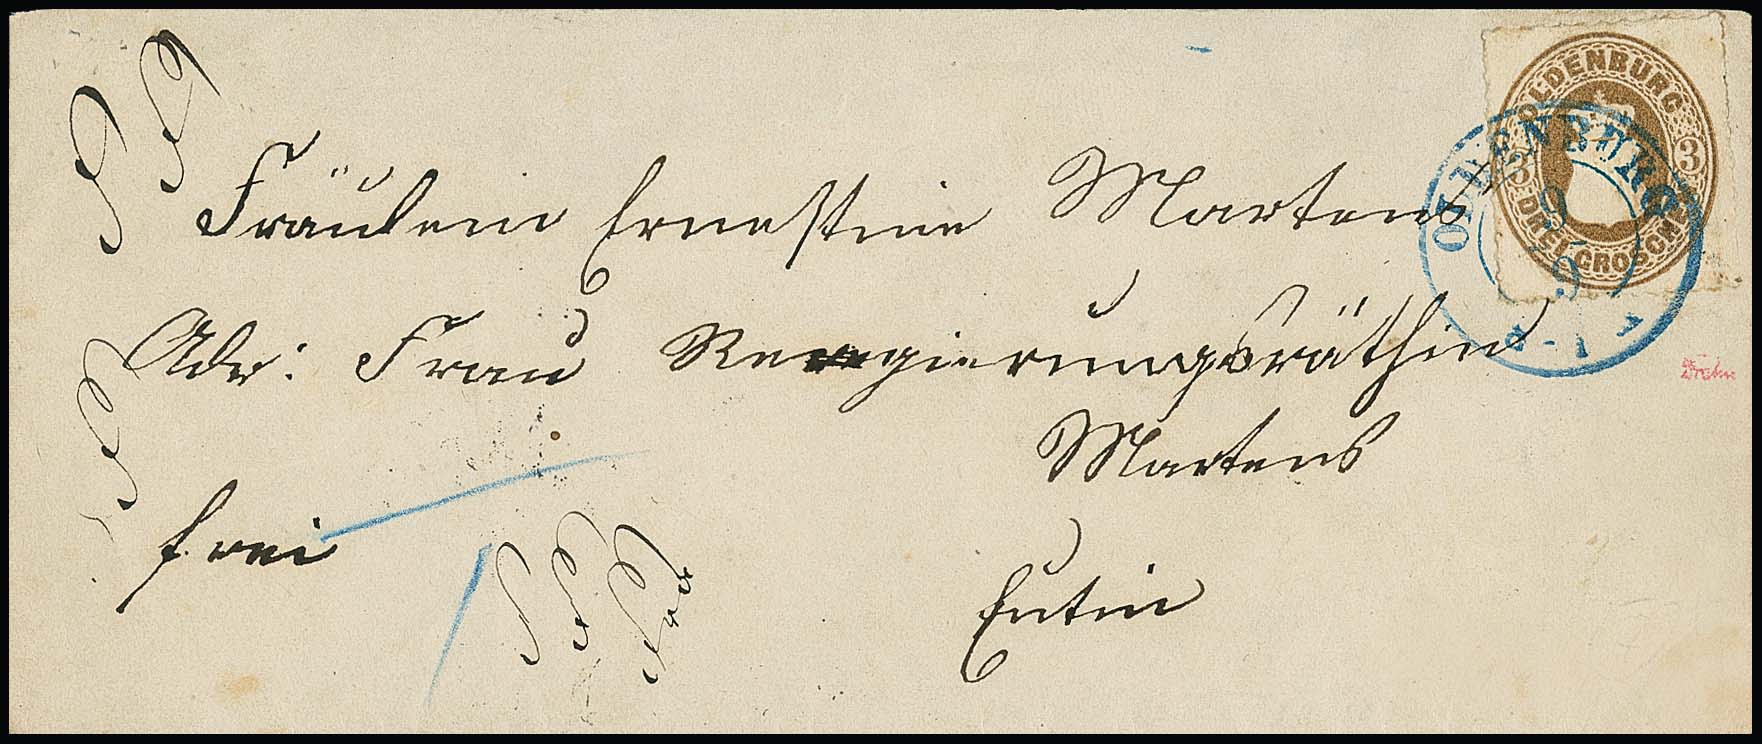 OLDENBURG
3 3
DREI GROSCHEN
OLDENBURG
9
9
Fräulein Ernestine Martens
Adr: Frau Regierungsräthin
Martens
frei
Eutin